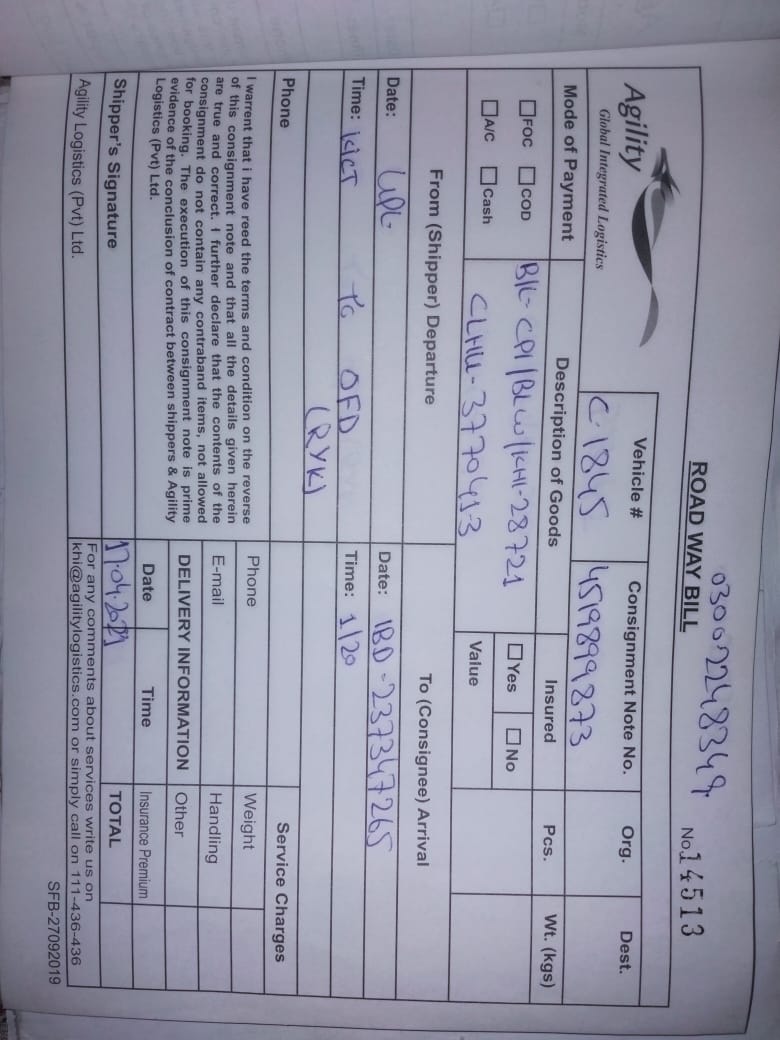 03002248349
ROAD WAY BILL
No. 14513
Agility
Global Integrated Logistics
Vehicle #
C-1845
Consignment Note No.
4519899873
Org.
Dest.
Mode of Payment
FOC COD
A/C Cash
Description of Goods
B/L- CPI/BLW/KHI-28721
CLHU-3770413
Insured
Yes No
Value
Pcs.
Wt. (kgs)
From (Shipper) Departure
To (Consignee) Arrival
Date: UPL
Date: IBD-237347265
Time: KICT To OFD
(RYK)
Time: 1/20
Phone
Service Charges
I warrent that i have reed the terms and condition on the reverse
of this consignment note and that all the details given herein
are true and correct. I further declare that the contents of the
consignment do not contain any contraband items, not allowed
for booking. The execution of this consignment note is prime
evidence of the conclusion of contract between shippers & Agility
Logistics (Pvt) Ltd.
Phone
Weight
E-mail
Handling
DELIVERY INFORMATION
Other
Date Time
Insurance Premium
Shipper's Signature
17.04.2021
TOTAL
Agility Logistics (Pvt) Ltd.
For any comments about services write us on
khi@agilitylogistics.com or simply call on 111-436-436
SFB-27092019